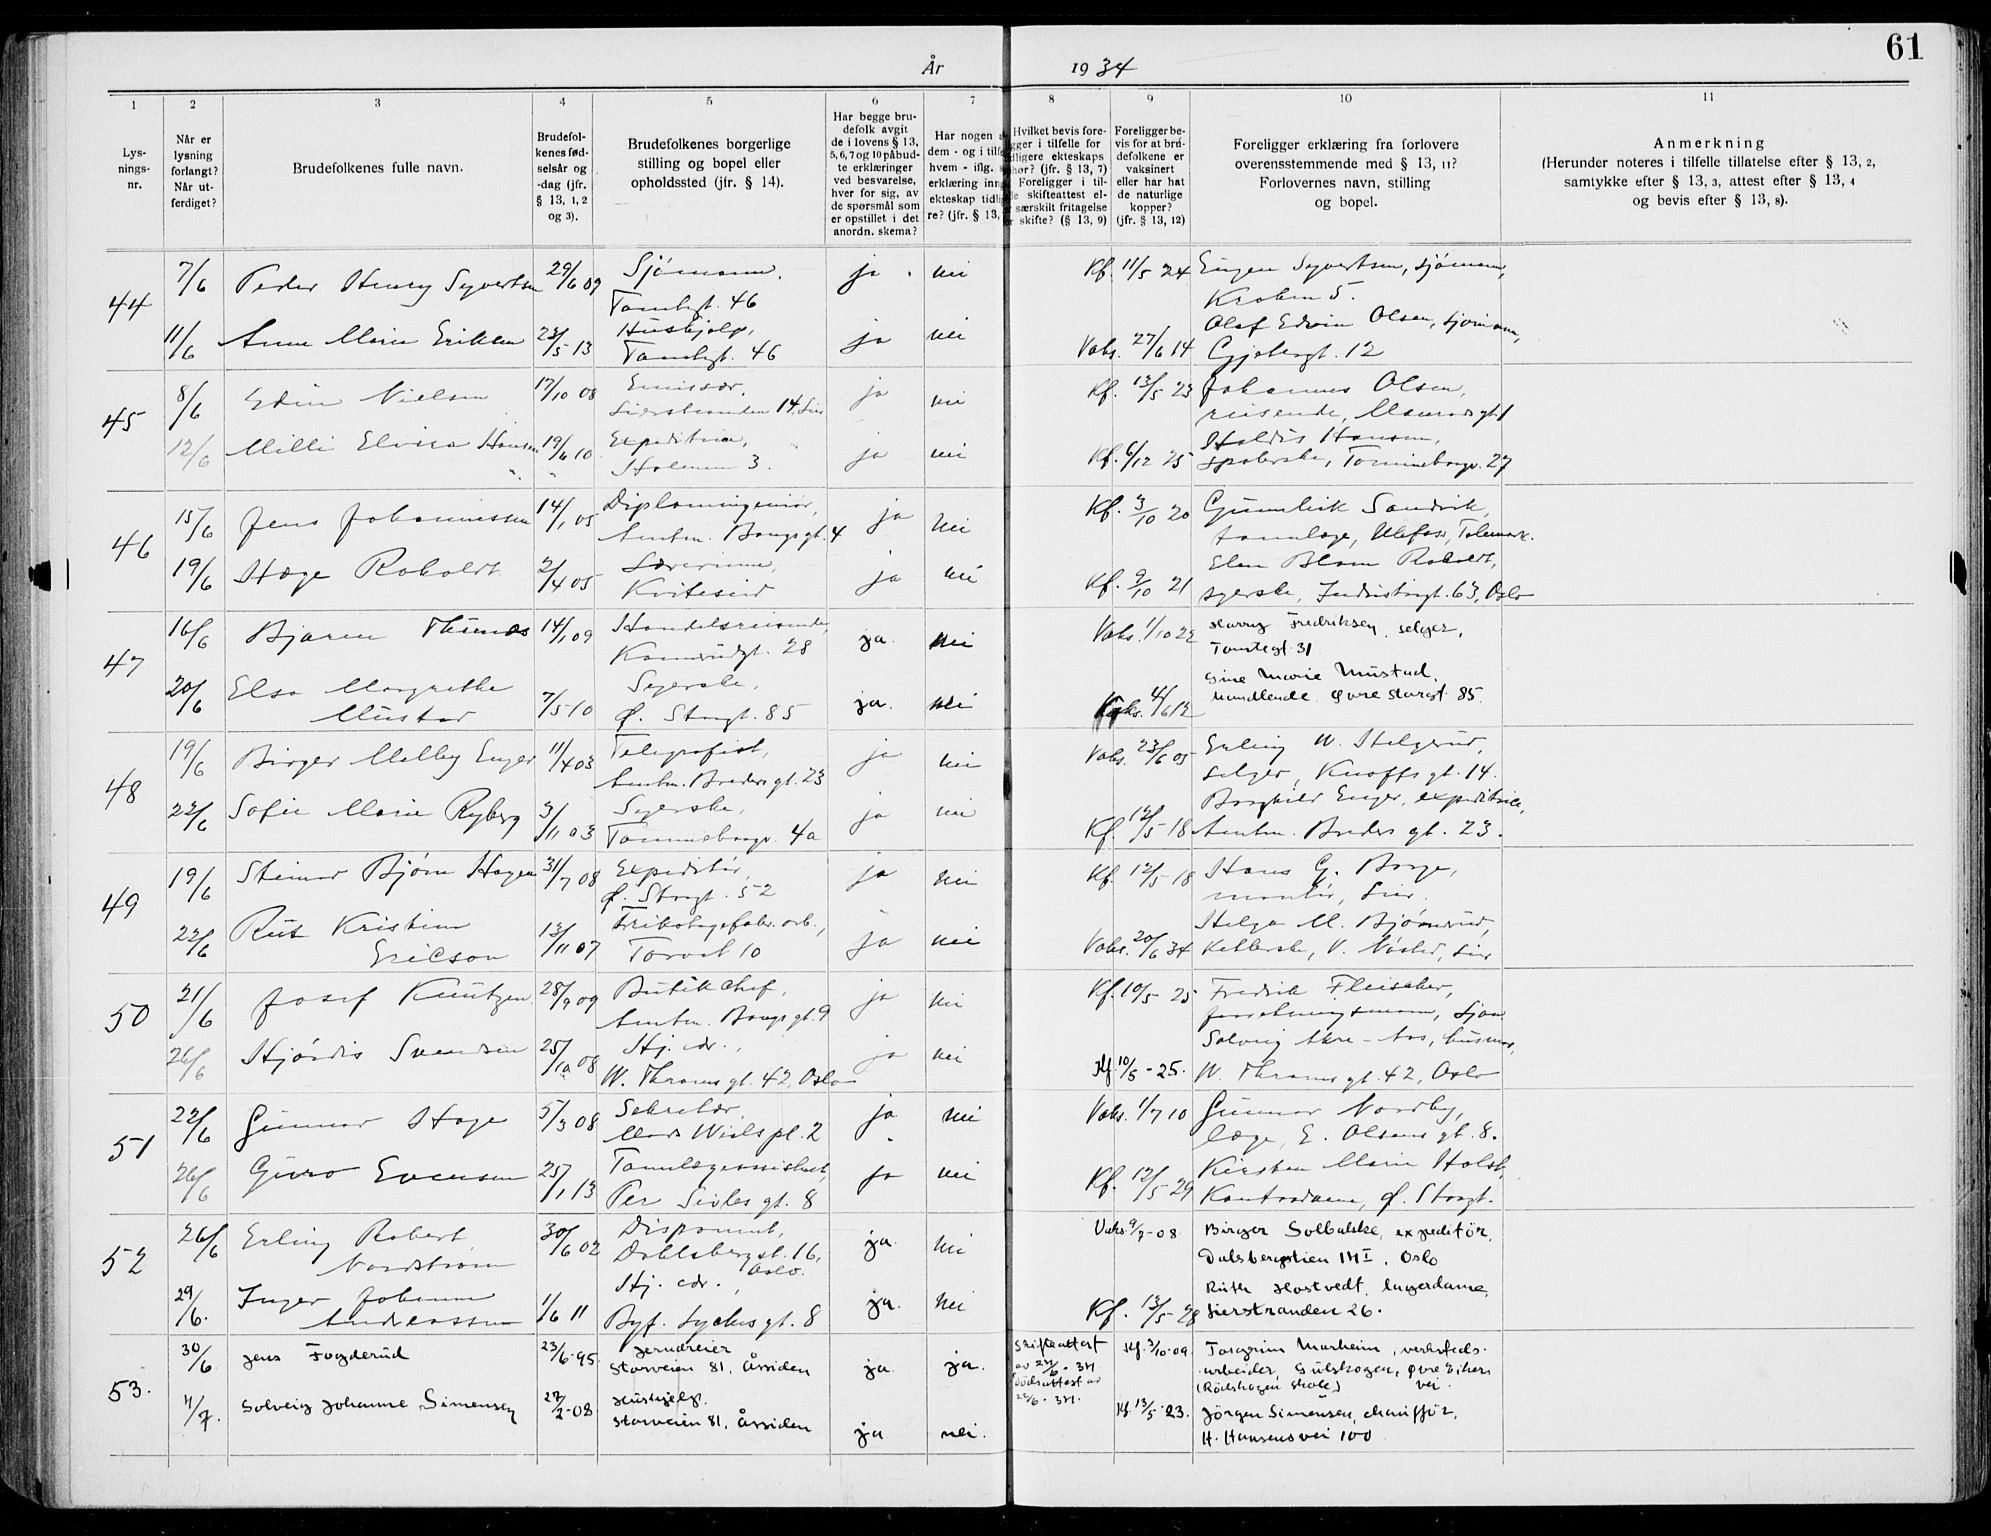 61
År 1934
1 2 3 4 5 6 7 8 9 10 11
Lysningsnr.
Når er lysning forlangt? Når utferdiget?
Brudefolkenes fulle navn.
Brudefolkenes fødselsår og -dag (jfr. § 13, 1, 2 og 3).
Brudefolkenes borgerlige stilling og bopel eller opholdssted (jfr. § 14).
Har begge brudefolk avgit de i lovens § 13, 5, 6, 7 og 10 påbudte erklæringer ved besvarelse, hver for sig, av de spørsmål som er opstillet i det anordn. skema?
Har nogen a
dem - og i tilfe
hvem - iflg. s
erklæring inng
ekteskap tidli
re? (jfr. § 13,
Hvilket bevis fore-
gger i tilfelle for
dligere ekteskaps
hør? (jfr. § 13, 7)
Foreligger i til-
le skifteattest el-
særskilt fritagelse
r skifte? (§ 13, 9)
Foreligger bevis for at brudefolkene er vaksinert eller har hat de naturlige kopper? (jfr. § 13, 12)
Foreligger erklæring fra forlovere overensstemmende med § 13, 11? Forlovernes navn, stilling og bopel.
Anmerkning
(Herunder noteres i tilfelle tillatelse efter § 13, 2,
samtykke efter § 13, 3, attest efter § 13, 4
og bevis efter § 13, 8).
44
7/6 Peder Henry Syvertsen 29/6 09 Sjømann, Tomtegt. 46 ja nei Kf. 11/5 24 Eugen Syvertsen, sjømann, Kroken 5.
11/6 Anne Marie Eriksen 23/5 13 Hushjelp, Tomtegt. 46 ja nei Vaks. 27/6 14 Olaf Edvin Olsen, sjømann, 12
45
8/6 Edin Nielsen 17/10 08 Emissær, Lierstranden 14, Lier ja nei Kf. 13/5 23 Johannes Olsen, reisende,
12/6 Milli Elvira Hansen 19/6 10 Expeditrise, Holmen 3. ja nei Kf. 6/12 25 Haldis Hansen, Tomineborgv. 27
46
15/6 Jens Johannessen 14/1 05 Diplomingeniør, Amtm. Bangs gt. 4 ja nei Kf. 3/10 20 Gunnleik Sandvik, tannlæge, Ulefoss, Telemark.
19/6 Hege Roholdt 2/4 05 Lærerinne, Kviteseid ja nei Kf. 9/10 21 Elen Blom Roholdt, syerske, Industrigt. 63, Oslo
47
16/6 Bjarne Thunes 14/1 09 Handelsreisende, 28 ja. nei Vaks. 1/10 22 Harry Fredriksen, selger, Tomtegt. 31
20/6 Elsa Margrethe Mustad 7/5 10 Syerske, Ø. Storgt. 85 ja. nei Vaks. 4/6 12 Gine Marie Mustad, Øvre Storgt. 85.
48
19/6 Birger Melby Enger 11/4 03 Telegrafist, Amtm. Breders gt. 23 ja nei Vaks. 23/6 05 Erling W. Helgerud, selger, Knoffs gt. 14.
22/6 Sofie Marie Ryberg 3/11 03 Syerske, Tomineborgv. 4a ja nei Kf. 12/5 18 Borghild Enger, expeditrise, Amtm. Breders gt. 23.
49
19/6 Steinar Bjørn Hagen 31/7 08 Expeditør, Ø. Storgt. 52 ja nei Kf. 12/5 18 Hans G. Borge, montør, Lier.
22/6 Rut Kristine Ericson 13/11 07 Trikotagefabr. arb., Torvet 10 ja nei Vaks. 20/6 34 Helga M. Bjørnerud, V. Nøsted, Lier
50
21/6 Josef Knutzen 28/9 09 Butikchef, Amtm. Bangs gt. 9 ja nei Kf. 10/5 25 Fredrik Fleischer, forretningsmann,
26/6 Hjørdis Svendsen 25/10 08 Hj. vær., W. Thranes gt. 42, Oslo ja nei Kf. 10/5 - 25. Solveig husmor, W. Thranes gt. 42, Oslo
51
22/6 Gunnar Hage 5/3 08 Sekretær, Mads Wiels pl. 2 ja nei Vaks. 1/7 10 Gunnar Nordby, læge, E. Olsens gt. 8.
26/6 Guro Evensen 25/1 13 Tannlægeassistent, Per Sivles gt. 8 ja nei Kf. 12/5 29 Kirsten Marie Holst, Kontordame, Ø. Storgt.
52
26/6 Erling Robert Nordstrøm 30/6 02 Disponent, Dahlsbergst. 16, Oslo. ja. nei Vaks 9/7-08 Birger Solbakke, expeditør, Dalsbergstien Oslo
29/6. Inger Johanne Andreassen 1/6 11 Hj. vær., Byf. Lyches gt. 8 ja. nei Kf. 13/5-28 Ruth Hostvedt, lagerdame, Lierstranden 26.
53.
30/6 Jens Fogderud 23/6-95 Jerndreier Storveien 81, Åssiden ja. ja. Skifteattest av 27/6 - 34. Dødsattest av 22/6 - 34. Kf. 3/10-09 Torgrim Marheim, verksteds-arbeider, Gulskogen, Øvre Eiker vei. (Rødskogen skole)
4/7. Solveig Johanne Simensen 27/2-08 Hushjelp, Storveien 81, Åssiden ja nei. Kf. 13/5-23. Jørgen Simensen, chauffør, H. Hansens vei 100